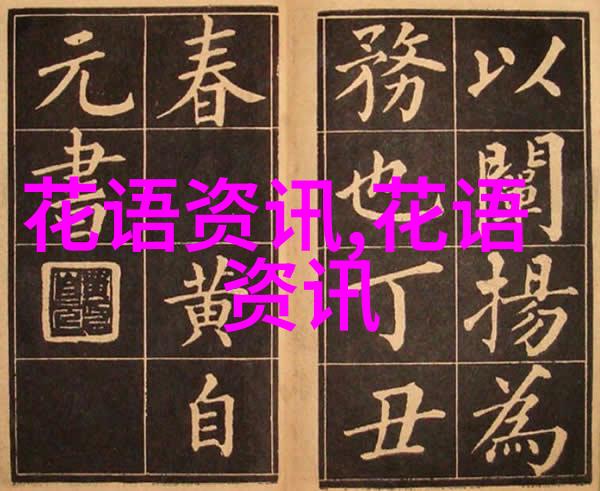 以闡揚為
務也丁丑
春 黄自
元書
花语资讯,花语
资讯